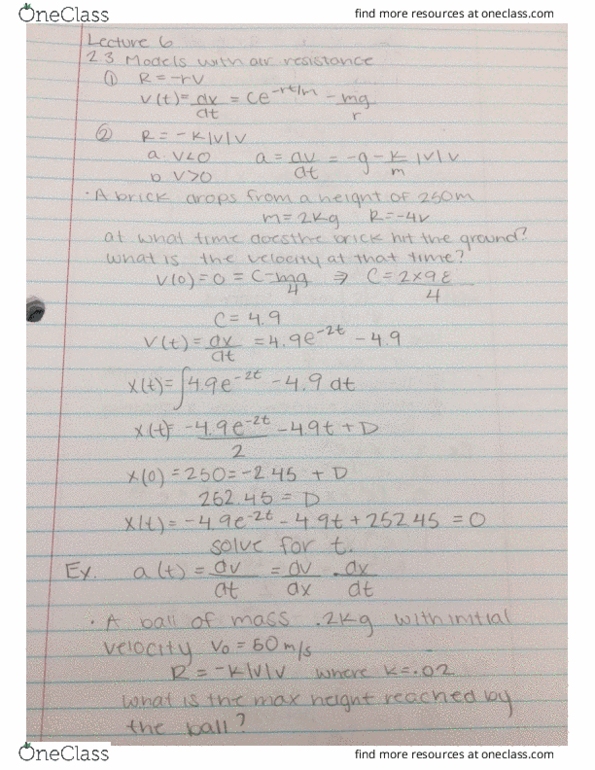 OneClass find more resources at oneclass.com
Lecture 6
2.3 Models with air resistance
① R = -rV
V(t) = dx/dt = Ce^-rt/m - mg/r
② R = -K|V|V
a. V<0 a = dv/dt = -g - k/m |V|V
b. V>0
· A brick drops from a height of 250m
m = 2Kg R = -4v
at what time does the brick hit the ground?
what is the velocity at that time?
V(0) = 0 = C - mg/4 ⇒ C = 2×9.8/4
C = 4.9
V(t) = dx/dt = 4.9e^-2t - 4.9
X(t) = ∫4.9e^-2t - 4.9 dt
X(t) = -4.9e^-2t/2 - 4.9t + D
X(0) = 250 = -2.45 + D
252.45 = D
X(t) = -4.9e^-2t - 4.9t + 252.45 = 0
solve for t.
Ex. a(t) = dv/dt = dv/dx · dx/dt
· A ball of mass .2Kg with initial
velocity V₀ = 50 m/s
R = -K|V|V where K = .02
What is the max height reached by
the ball?
OneClass find more resources at oneclass.com